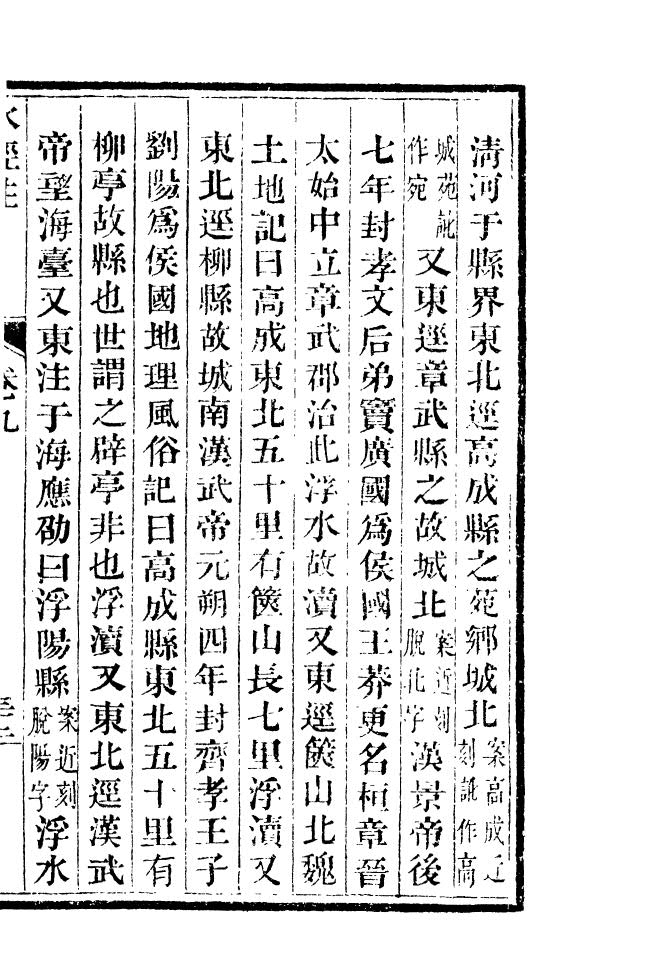 清河于縣界東北逕高成縣之苑鄉城北案高成近刻訛作高
城苑訛作宛又東逕章武縣之故城北案近刻脫北字漢景帝後
七年封孝文后弟竇廣國爲侯國王莽更名桓章晉
太始中立章武郡治此浮水故瀆又東逕篋山北魏
土地記曰高成東北五十里有篋山長七里浮瀆又
東北逕柳縣故城南漢武帝元朔四年封齊孝王子
劉陽爲侯國地理風俗記曰高成縣東北五十里有
柳亭故縣也世謂之辟亭非也浮瀆又東北逕漢武
帝望海臺又東注于海應劭曰浮陽縣案近刻脫陽字浮水
水經注 卷九